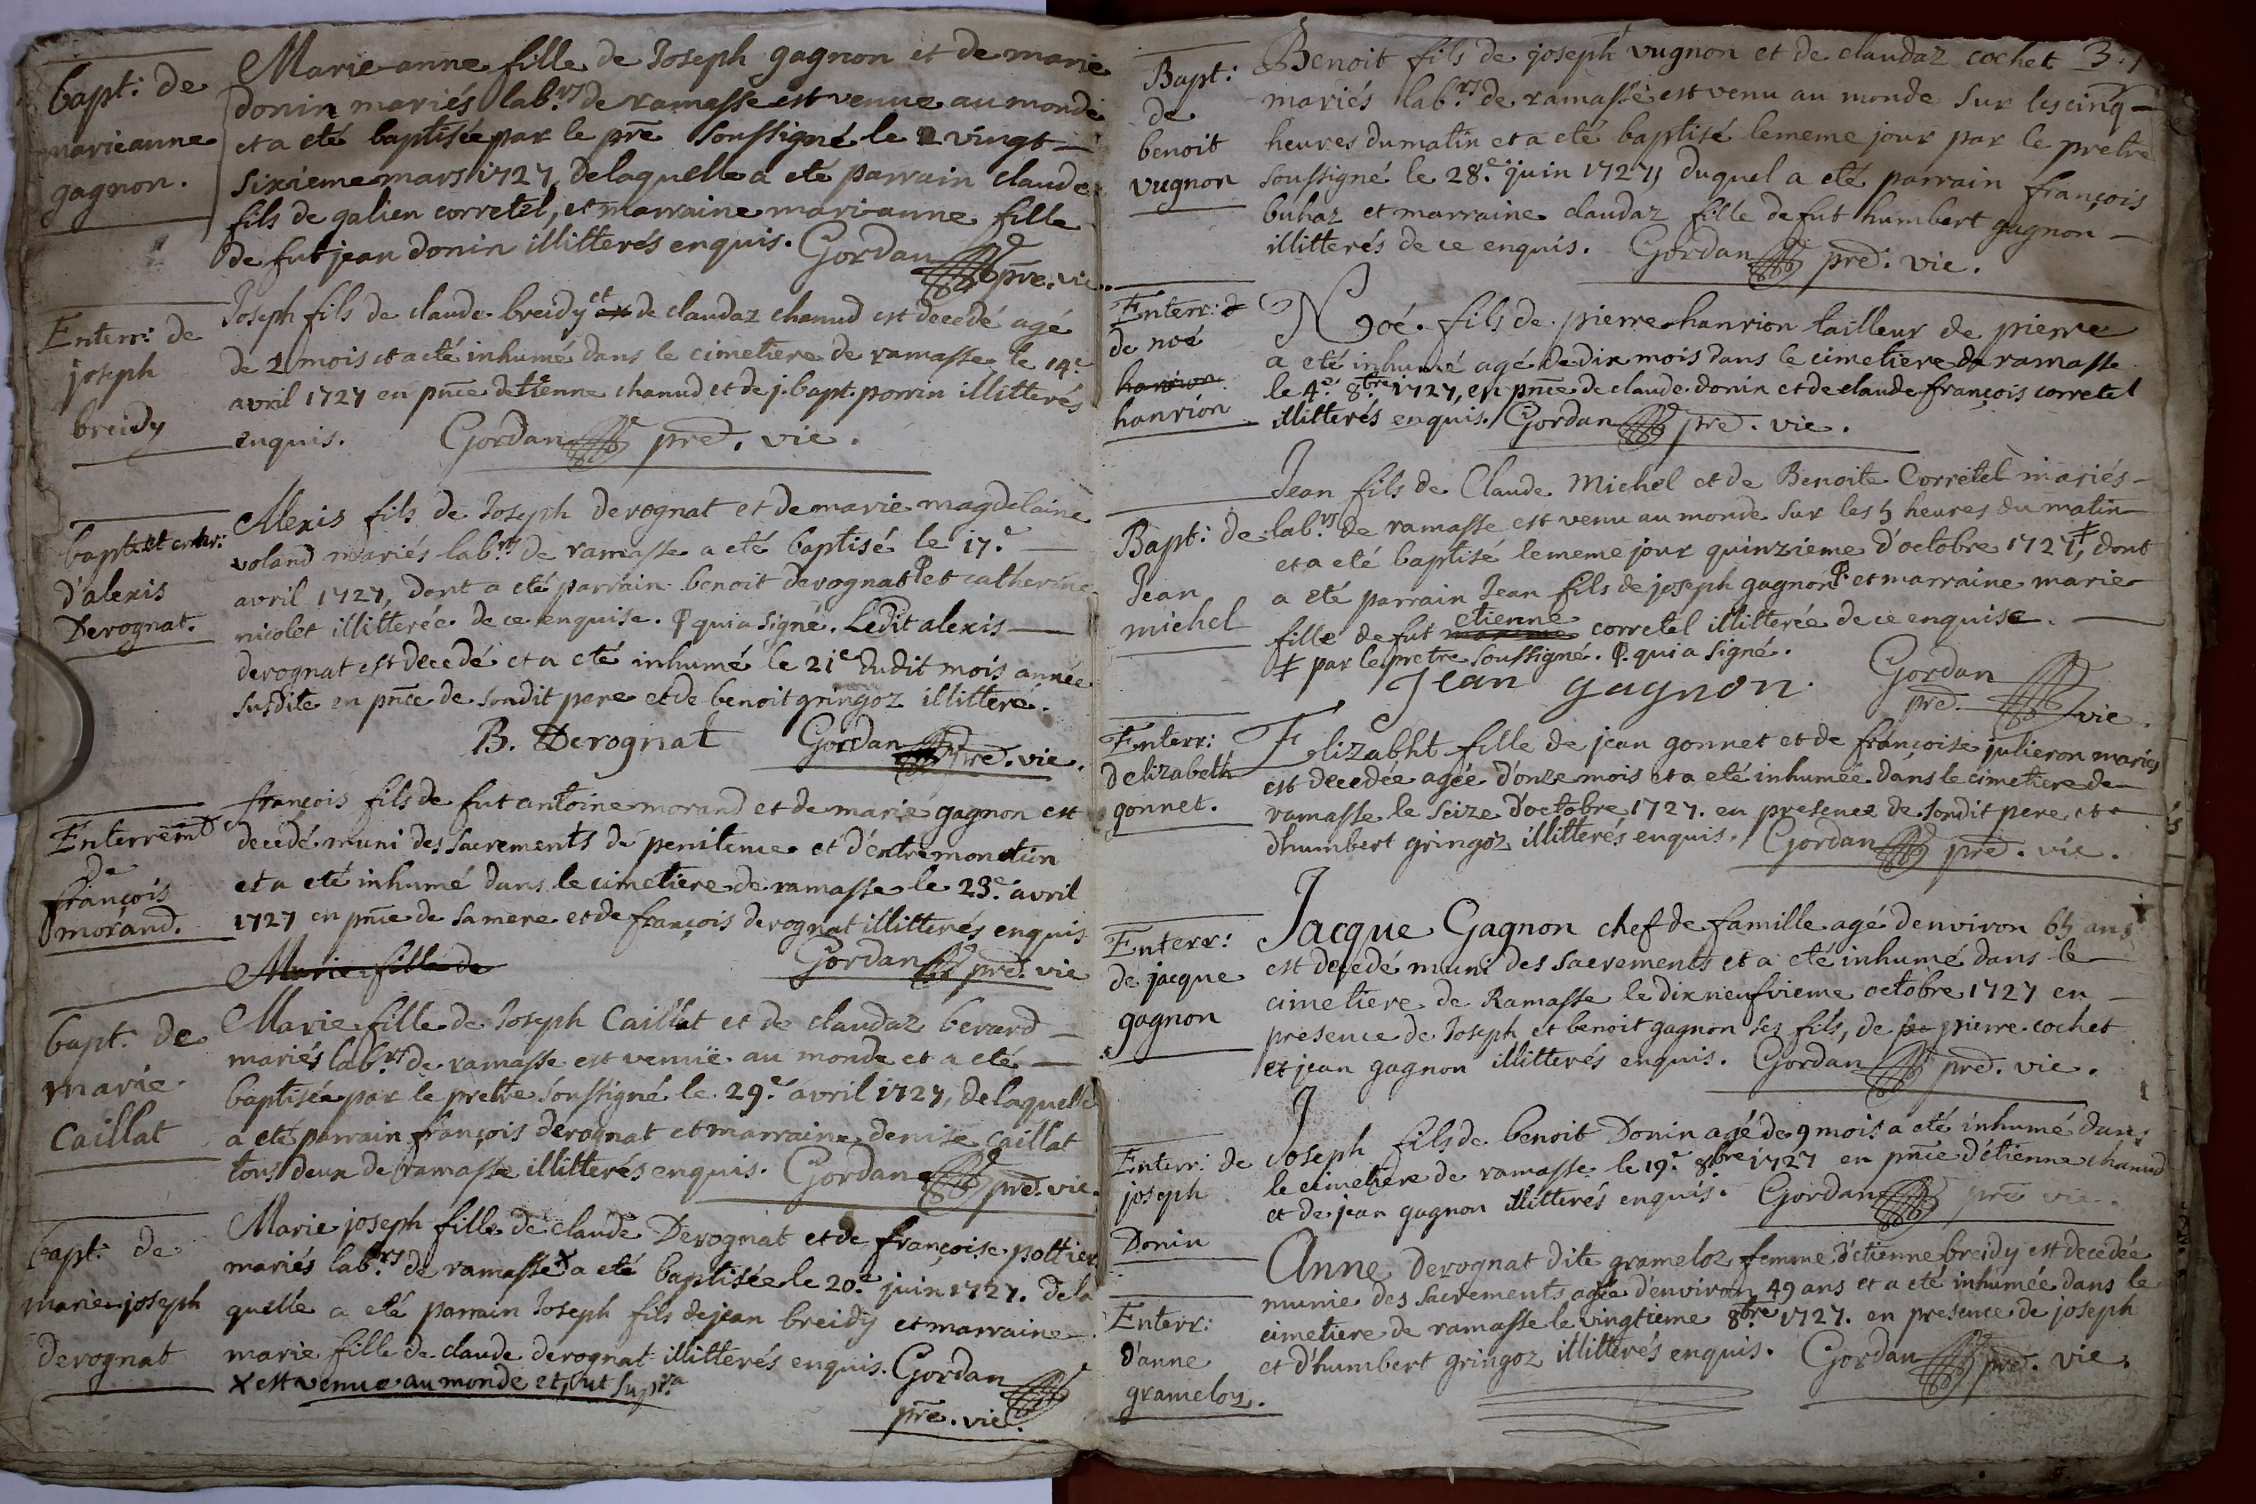 bapt: de
marieanne
gagnon.
Marie anne fille de Joseph gagnon et de marie
donin mariés lab.rs de ramasse est venue au monde
et a eté baptisée par le pre soussigné le vingt
sixieme mars 1727, de laquelle a eté parrain claude
fils de galien corretel, et marraine marianne fille
de fut jean donin illitterés enquis. Gordan
pre. vic.
Enterr: de
joseph
breidy
Joseph fils de claude breidy et de claudaz chanud est decedé agé
de 2 mois et a eté inhumé dans le cimetiere de ramasse le 14e
avril 1727 en pnce detienne chanud et de j. bapt. porrin illitterés
enquis. Gordan pre. vic.
bapt. et enter:
d'alexis
Derognat.
Alexis fils de Joseph derognat et de marie magdelaine
voland mariés lab.rs de ramasse a eté baptisé le 17.e
avril 1727, dont a eté parrain benoit derognat P et catherine
nicolet illitterée de ce enquise. P qui a signé. Ledit alexis
derognat est decedé et a eté inhumé le 21e dudit mois année
susdite en pnce de sondit pere et de benoit gringoz illitteré.
B. Derognat Gordan pre. vic.
Enterremt
de
françois
morand.
françois fils de fut antoine morand et de marie gagnon est
decedé muni des sacrements de penitence et d'extremonction
et a eté inhumé dans le cimetiere de ramasse le 23e. avril
1727 en pnce de sa mere et de françois derognat illitterés enquis
Marie fille de Gordan pre. vic
bapt. de
marie
caillat
Marie fille de Joseph Caillat et de claudaz berard
mariés lab.rs de ramasse est venuë au monde et a eté
baptisée par le pretre soussigné le 29.e avril 1727, de laquelle
a eté parrain françois derognat et marraine denise caillat
tous deux de ramasse illitterés enquis. Gordan pre. vic.
bapt: de
marie joseph
derognat
Marie joseph fille de claude Derognat et de françoise pottier
mariés lab.rs de ramasse X a eté baptisée le 20.e juin 1727. de la
quelle a eté parrain Joseph fils de jean breidy et marraine
marie fille de claude derognat illitterés enquis. Gordan
X est venue au monde et, ut supra
pre. vic.
Bapt:
de
benoit
vugnon
Benoit fils de joseph vugnon et de claudaz cochet 3.
mariés lab.rs de ramasse est venu au monde sur les cinq
heures du matin et a eté baptisé le meme jour par le pretre
soussigné le 28.e juin 1727, duquel a eté parrain françois
buhaz et marraine claudaz fille de fut humbert gagnon
illitterés de ce enquis. Gordan pre. vic.
Enterr: d
de noé
hanrion
hanrion
Noé fils de pierre hanrion tailleur de pierre
a eté inhumé agé de dix mois dans le cimetiere de ramasse
le 4.e 8.bre 1727, en pnce de claude donin et de claude françois corretel
illitterés enquis. Gordan pre. vic.
Bapt: de
Jean
michel
Jean fils de Claude Michel et de Benoite Corretel mariés
lab.rs de ramasse est venu au monde sur les 5 heures du matin
et a eté baptisé le meme jour quinzieme d'octobre 1727, ‡ dont
a eté parrain Jean fils de joseph gagnon P. et marraine marie
fille de fut etienne corretel illitterée de ce enquise.
‡ par le pretre soussigné. P. qui a signé.
Jean gagnon. Gordan
pre. vic.
Enterr:
delizabeth
gonnet.
Elizabht fille de jean gonnet et de françoise julieron mariés
est decedée agée d'onze mois et a eté inhumée dans le cimetiere de
ramasse le seize d'octobre 1727. en presence de sondit pere et
dhumbert gringoz illitterés enquis. Gordan pre. vic.
Enterr:
de jacque
gagnon
Jacque Gagnon chef de famille agé denviron 65 ans
est decedé muni des sacrements et a eté inhumé dans le
cimetiere de Ramasse le dixneufvieme octobre 1727 en
presence de Joseph et benoit gagnon ses fils, de pierre cochet
et jean gagnon illitterés enquis. Gordan pre. vic.
Enterr: de
joseph
Donin
Joseph fils de benoit Donin agé de 9 mois a eté inhumé dans
le cimetiere de ramasse le 19.e 8.bre 1727 en pnce d'étienne chanud
et de jean gagnon illitterés enquis. Gordan pre vic.
Enterr:
d'anne
grameloz.
Anne derognat dite grameloz femme d'etienne breidy est decedée
munie des sacrements agée d'environ 49 ans et a eté inhumée dans le
cimetiere de ramasse le vingtieme 8bre 1727. en presence de joseph
et d'humbert gringoz illitterés enquis. Gordan pre. vic.